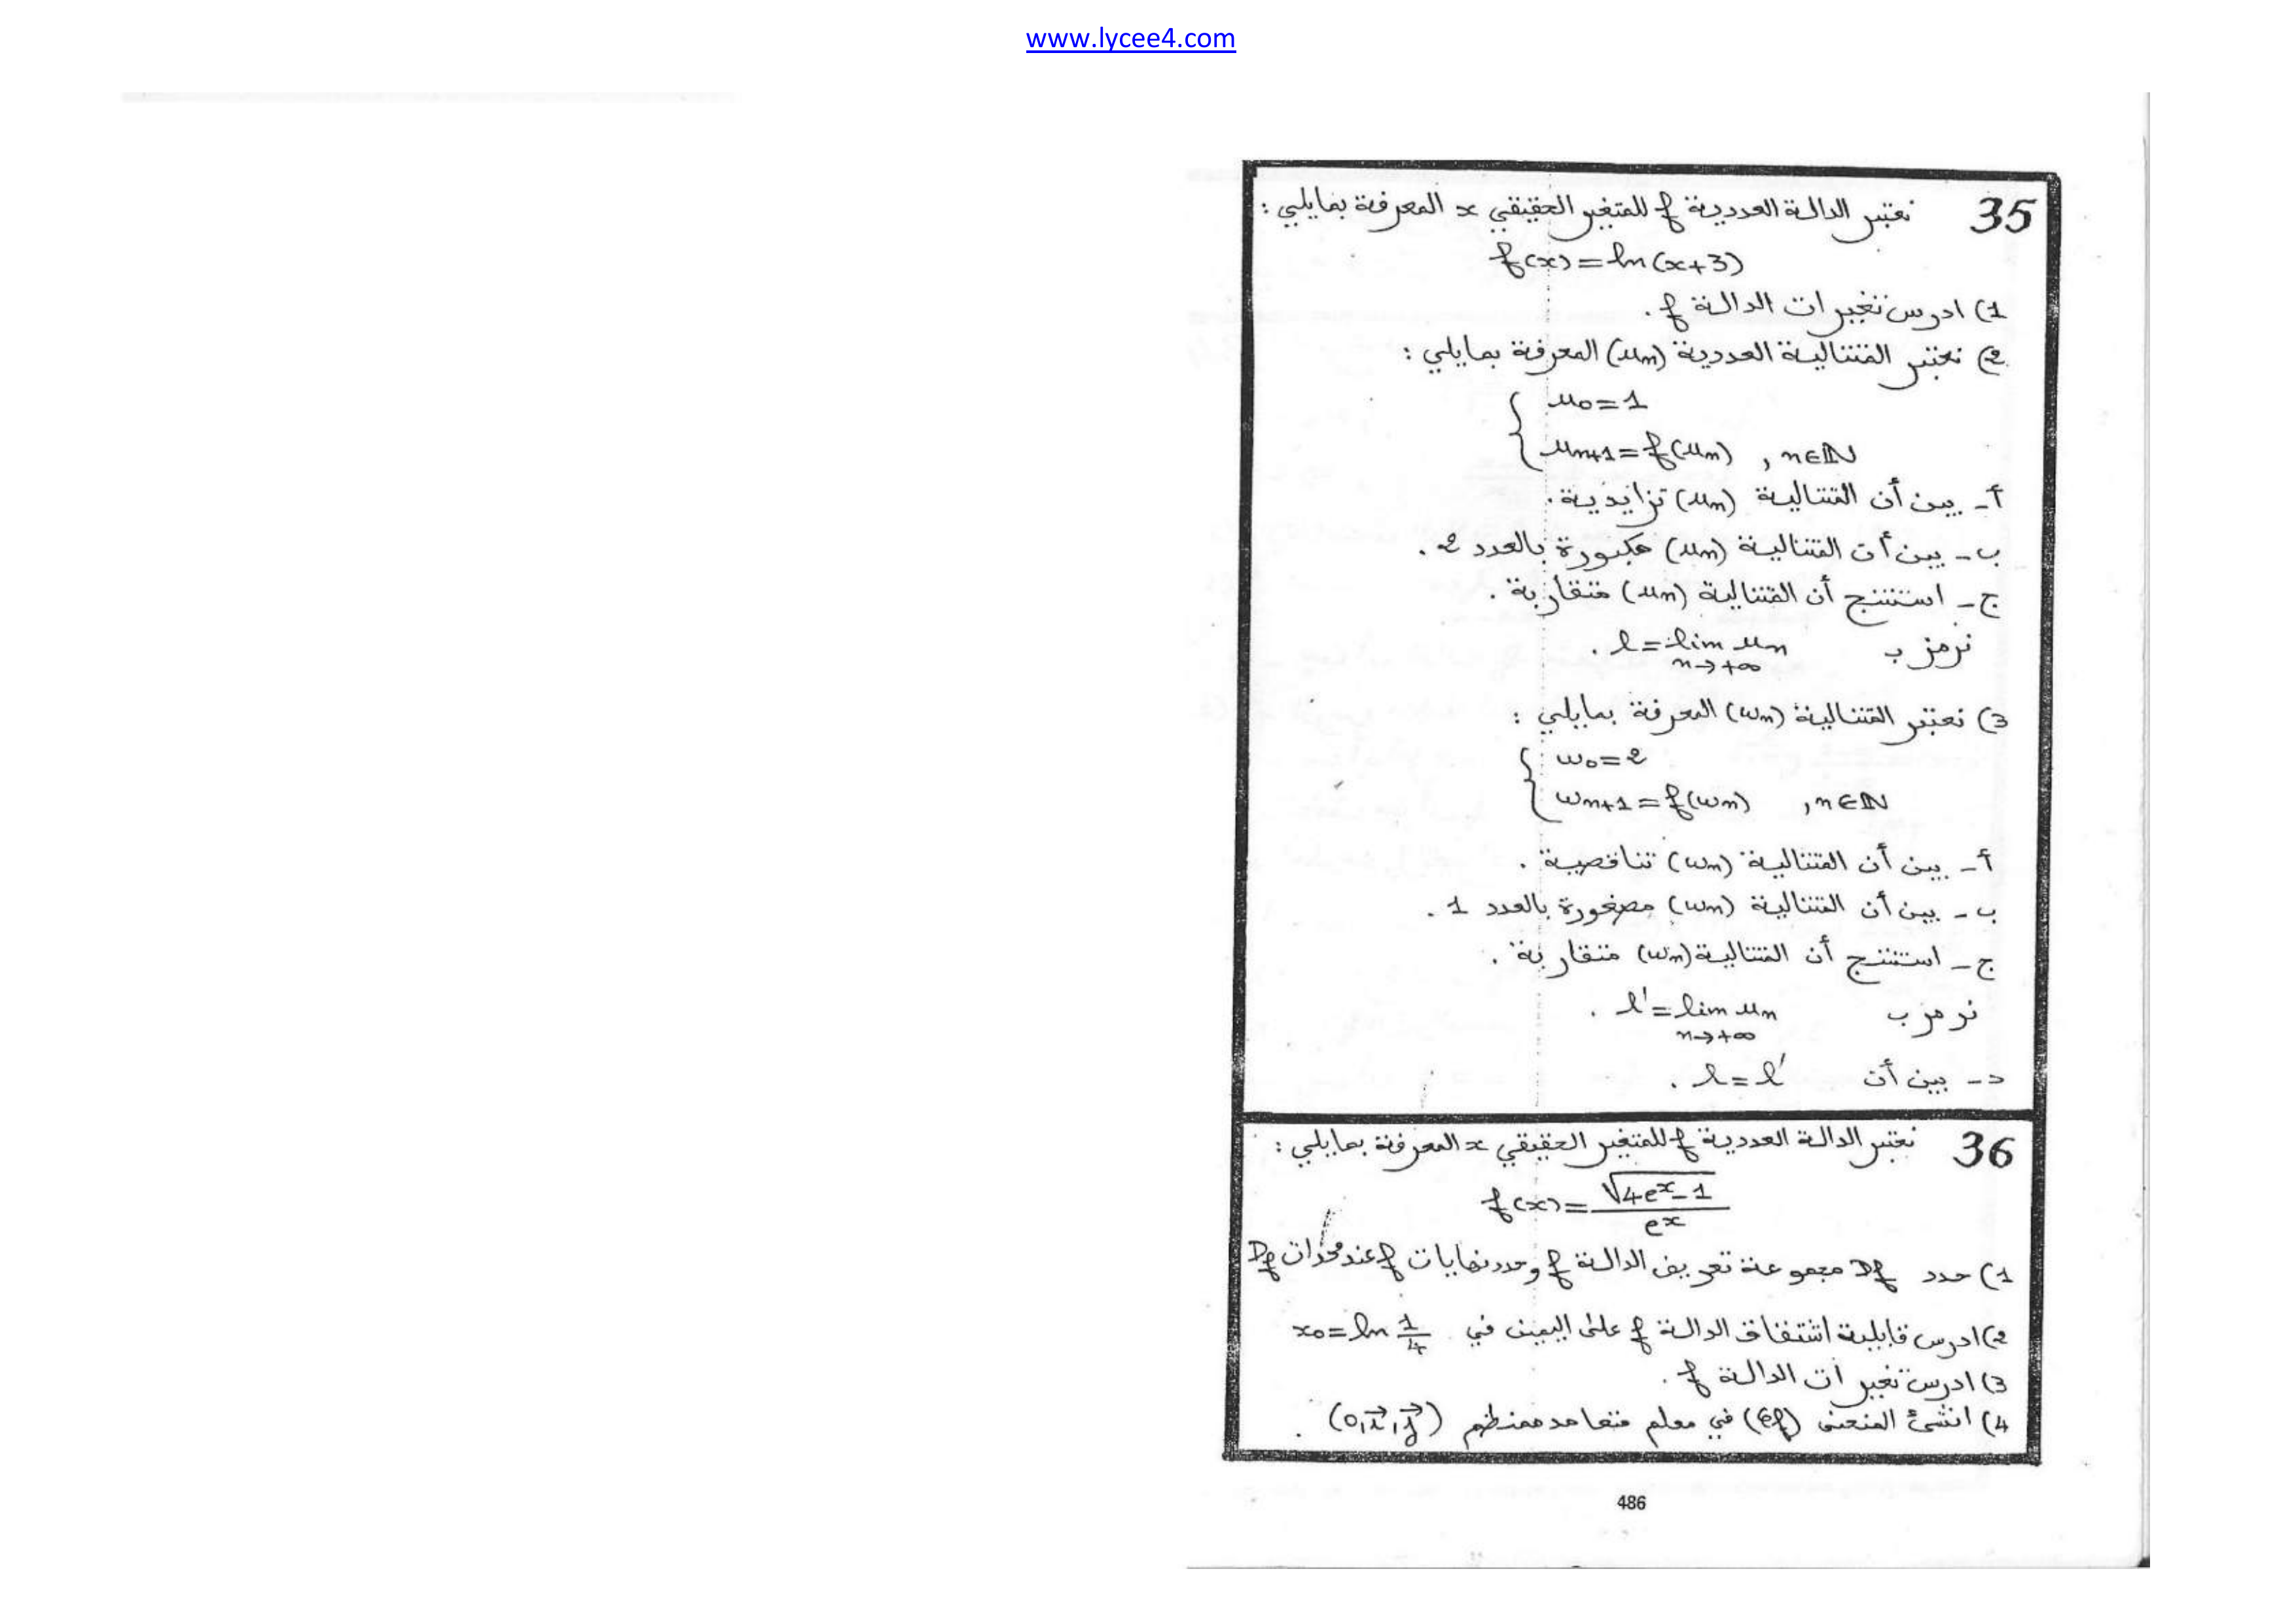 www.lycee4.com
35 نعتبر الدالة العددية f للمتغير الحقيقي x المعرفة بمايلي :
f(x)=ln(x+3)
1) ادرس تغيرات الدالة f .
2) نعتبر المتتالية العددية (un) المعرفة بمايلي :
{ u0=1
un+1=f(un) , n∈ℕ
أ- بين أن المتتالية (un) تزايدية .
ب- بين أن المتتالية (un) مكبورة بالعدد 2 .
ج- استنتج أن المتتالية (un) متقاربة .
نرمز ب l=lim un .
n→+∞
3) نعتبر المتتالية (wn) المعرفة بمايلي :
{ w0=2
wn+1=f(wn) , n∈ℕ
أ- بين أن المتتالية (wn) تناقصية .
ب- بين أن المتتالية (wn) مصغورة بالعدد 1 .
ج- استنتج أن المتتالية (wn) متقاربة .
نرمز ب l'=lim un .
n→+∞
د- بين أن l=l' .
36 نعتبر الدالة العددية f للمتغير الحقيقي x المعرفة بمايلي :
f(x)=√(4e^x-1)/e^x
1) حدد Df مجموعة تعريف الدالة f وحدد نهايات f عند محدات Df
2) ادرس قابلية اشتقاق الدالة f على اليمين في x0=ln 1/4
3) ادرس تغيرات الدالة f .
4) انشئ المنحنى (Cf) في معلم متعامد ممنظم (O,i⃗,j⃗) .
486